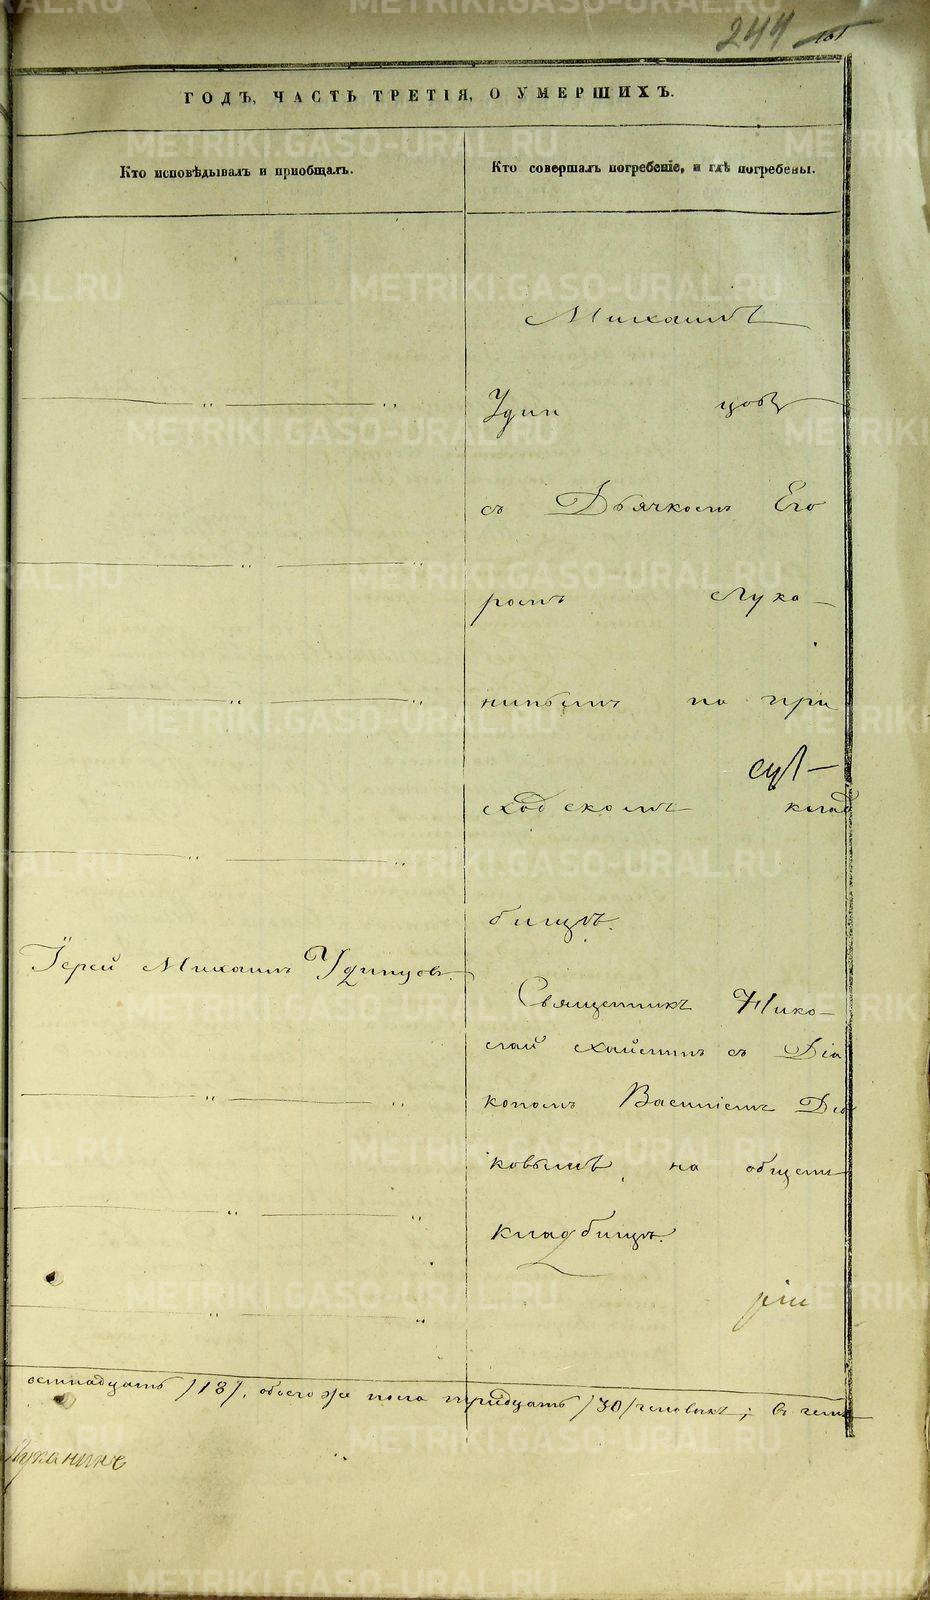 244
ГОДЪ, ЧАСТЬ ТРЕТІЯ, О УМЕРШИХЪ.
Кто исповѣдывалъ и пріобщалъ.
Кто совершалъ погребеніе, и гдѣ погребены.
Михаилъ
Удин цовъ
съ Дьячкомъ Его
ромъ Лука-
нинымъ на при
ходскомъ клад
бищѣ.
Іерей Михаилъ Удинцовъ.
Священникъ Нико-
лай съ Діа
кономъ Василіемъ
ковымъ, на общемъ
кладбищѣ.
осмнадцать /18/, обоего же пола тридцать /30/ человѣкъ; въ чемъ
Луканинъ
METRIKI.GASO-URAL.RU